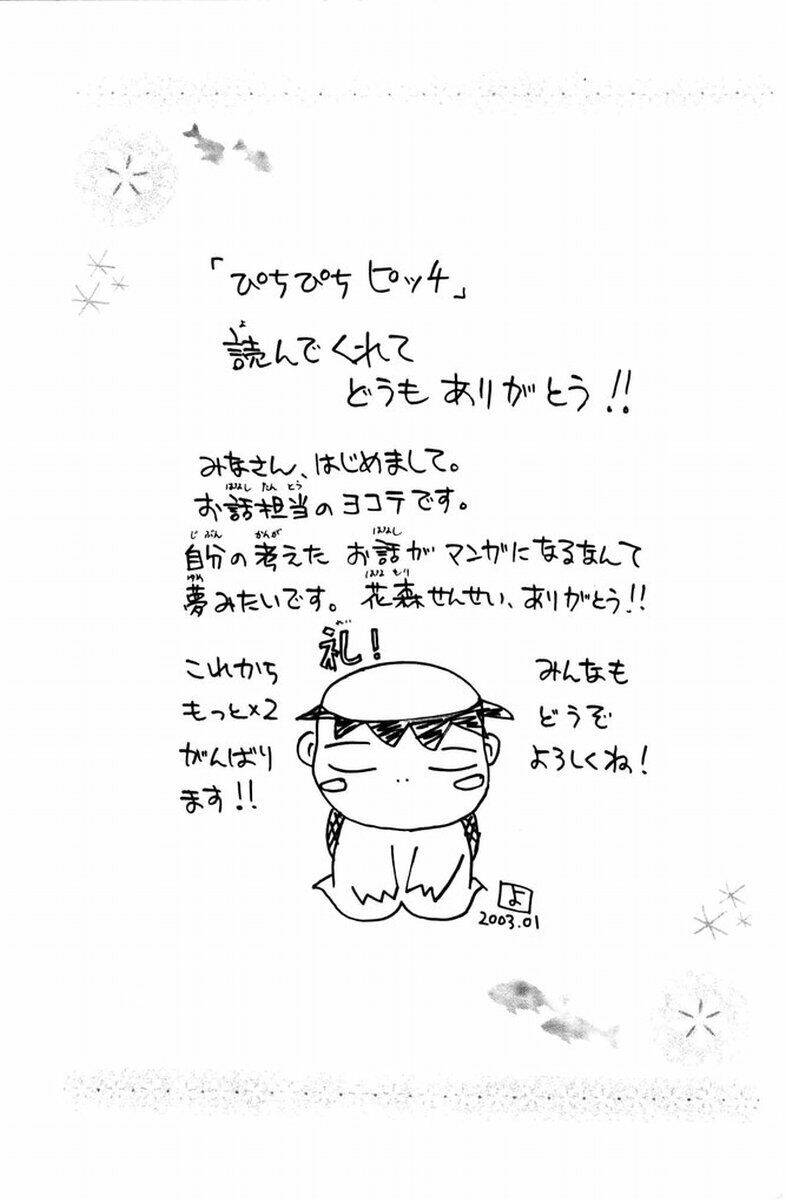 「ぴちぴちピッチ」
読んでくれて
どうもありがとう!!
みなさん、はじめまして。
お話担当のヨコテです。
自分の考えた お話がマンガになるなんて
夢みたいです。花森せんせい、ありがとう!!
礼!
これから
もっと×2
がんばり
ます!!
みんなも
どうぞ
よろしくね!
よ
2003.01